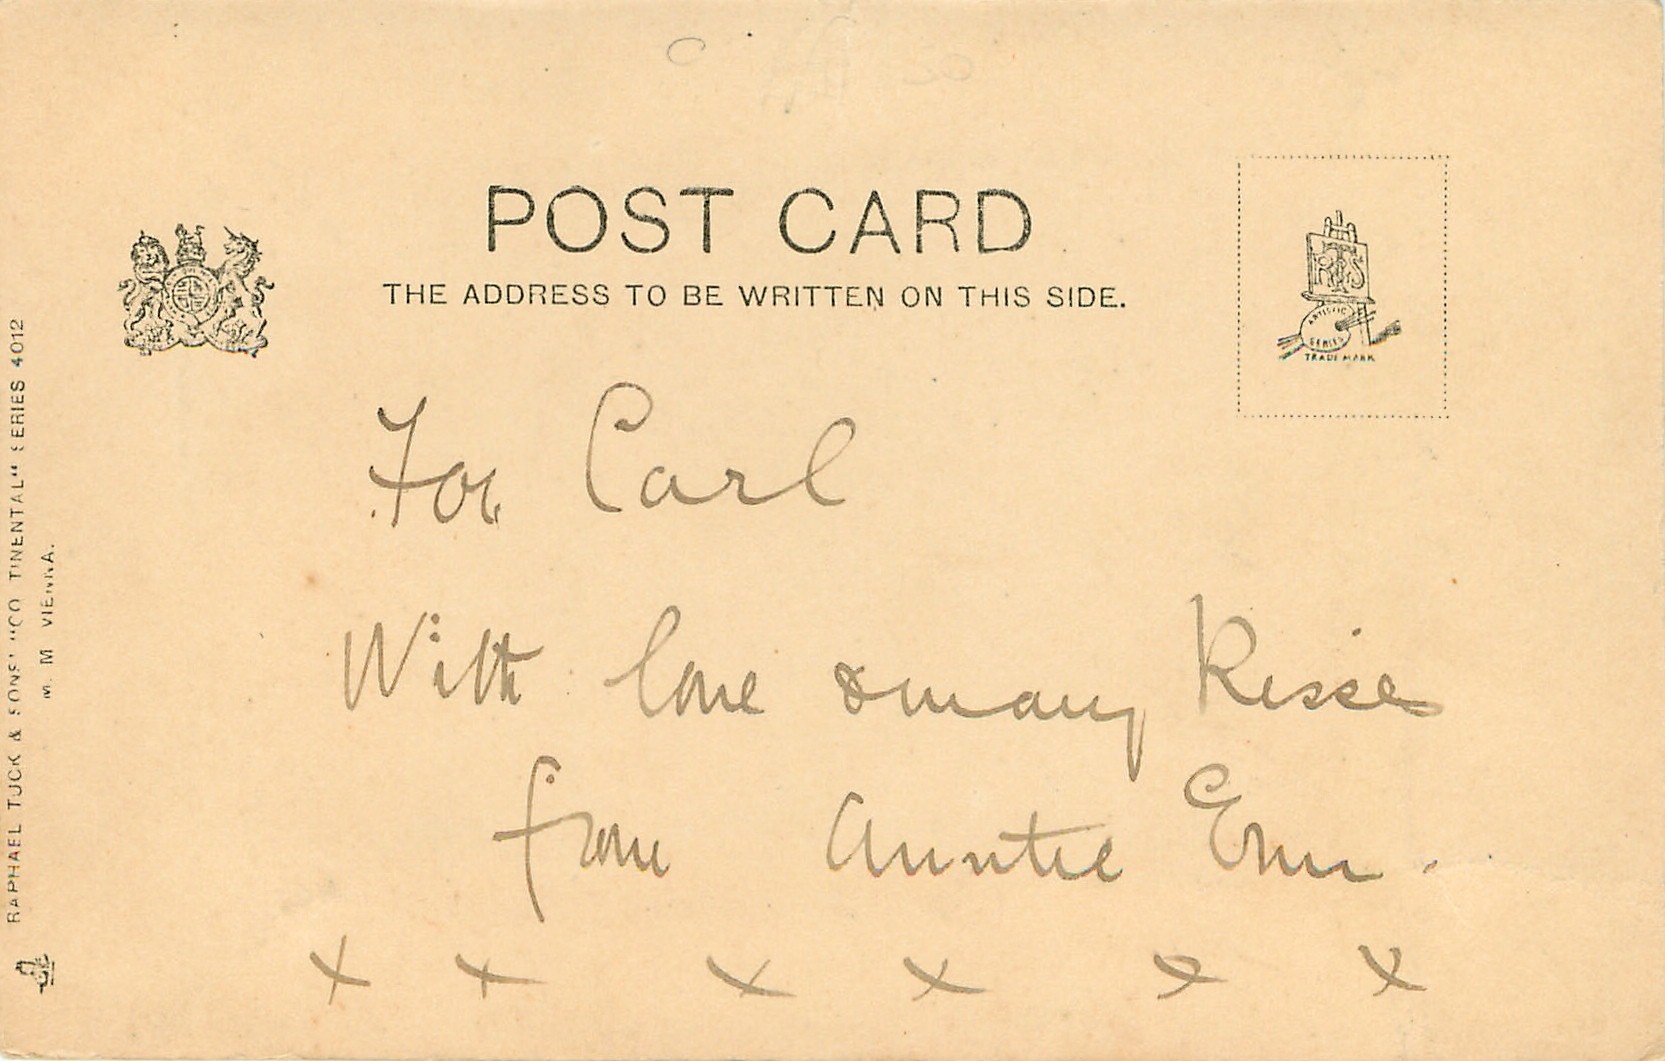 POST CARD
THE ADDRESS TO BE WRITTEN ON THIS SIDE.
RTS
ARTISTIC
SERIES
TRADE MARK
For Carl
With love & many Kisses
from Auntie
x x x x x x
RAPHAEL TUCK & SONS' "CONTINENTAL" SERIES 4012
M. M. VIENNA.